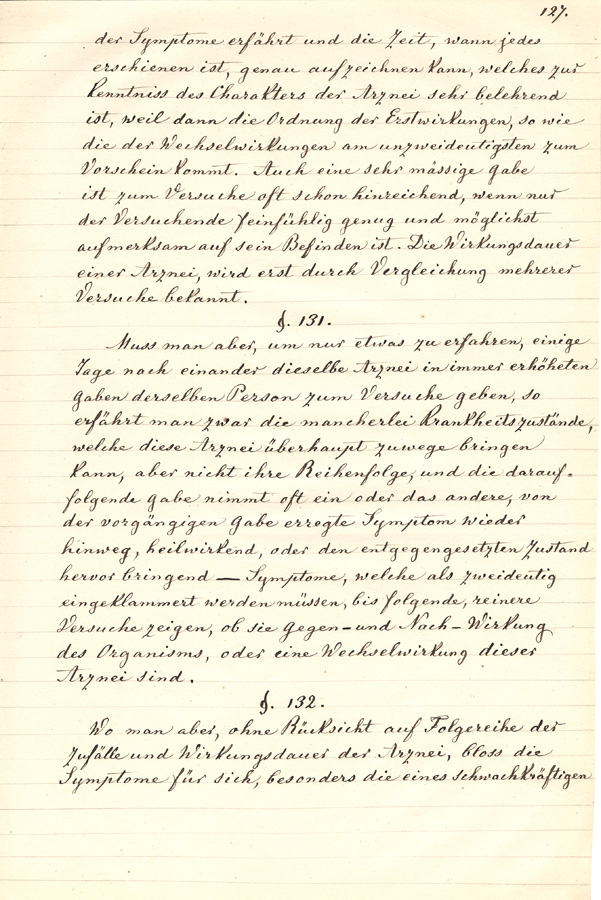 127.
der Symptome erfährt und die Zeit, wann jedes
erschienen ist, genau aufzeichnen kann, welches zur
Kenntniss des Charakters der Arznei sehr belehrend
ist, weil dann die Ordnung der Erstwirkungen, so wie
die der Wechselwirkungen am unzweideutigsten zum
Vorschein kommt. Auch eine sehr mässige Gabe
ist zum Versuche oft schon hinreichend, wenn nur
der Versuchende feinfühlig genug und möglichst
aufmerksam auf sein Befinden ist. Die Wirkungsdauer
einer Arznei, wird erst durch Vergleichung mehrerer
Versuche bekannt.
§. 131.
Muss man aber, um nur etwas zu erfahren, einige
Tage nach einander dieselbe Arznei in immer erhöheten
Gaben derselben Person zum Versuche geben, so
erfährt man zwar die mancherlei Krankheitszustände,
welche diese Arznei überhaupt zuwege bringen
kann, aber nicht ihre Reihenfolge, und die darauf-
folgende Gabe nimmt oft ein oder das andere, von
der vorgängigen Gabe erregte Symptom wieder
hinweg, heilwirkend, oder den entgegengesetzten Zustand
hervor bringend — Symptome, welche als zweideutig
eingeklammert werden müssen, bis folgende, reinere
Versuche zeigen, ob sie Gegen- und Nach-Wirkung
des Organisms, oder eine Wechselwirkung dieser
Arznei sind.
§. 132.
Wo man aber, ohne Rücksicht auf Folgereihe der
Zufälle und Wirkungsdauer der Arznei, bloss die
Symptome für sich, besonders die eines schwachkräftigen